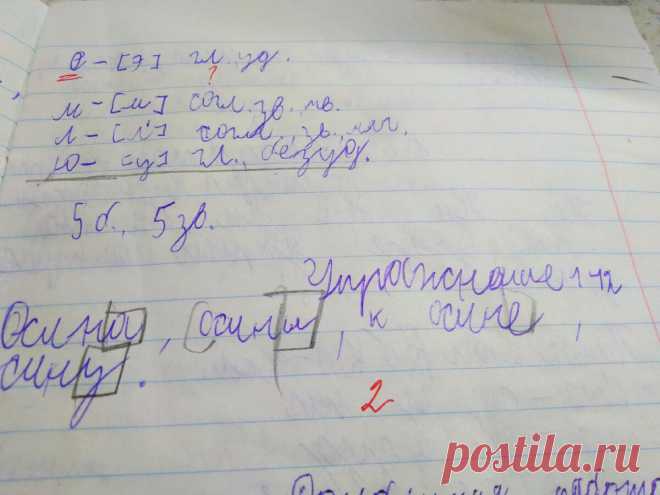 е - [э] гл. уд.
?
м - [м] согл. зв. тв.
л - [л'] согл., зв., мяг.
ю - [у] гл., безуд.
5 б., 5 зв.
Упражнение 142
Осина, осины, к осине,
сину.
2
posti-la.ru